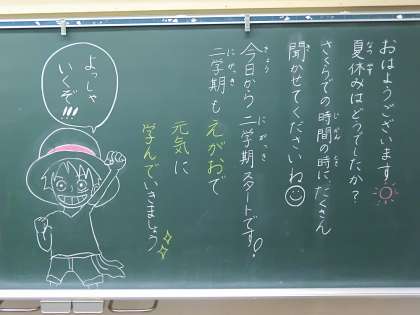 おはようございます
夏休みはどうでしたか？
さくらでの時間の時にたくさん
聞かせてくださいね
今日から二学期スタートです！
二学期もえがおで
元気に
学んでいきましょう
よっしゃ
いくぞ!!!